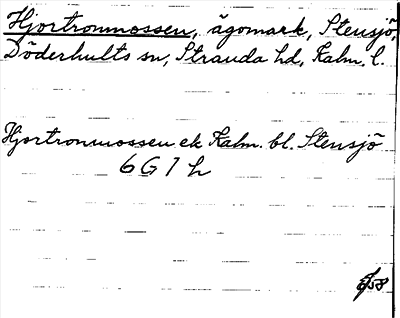 Hjortronmossen, ägomark, Stensjö,
Döderhults sn, Stranda hd, Kalm. l.
Hjortronmossen ek Kalm. bl. Stensjö
6 G 1 h